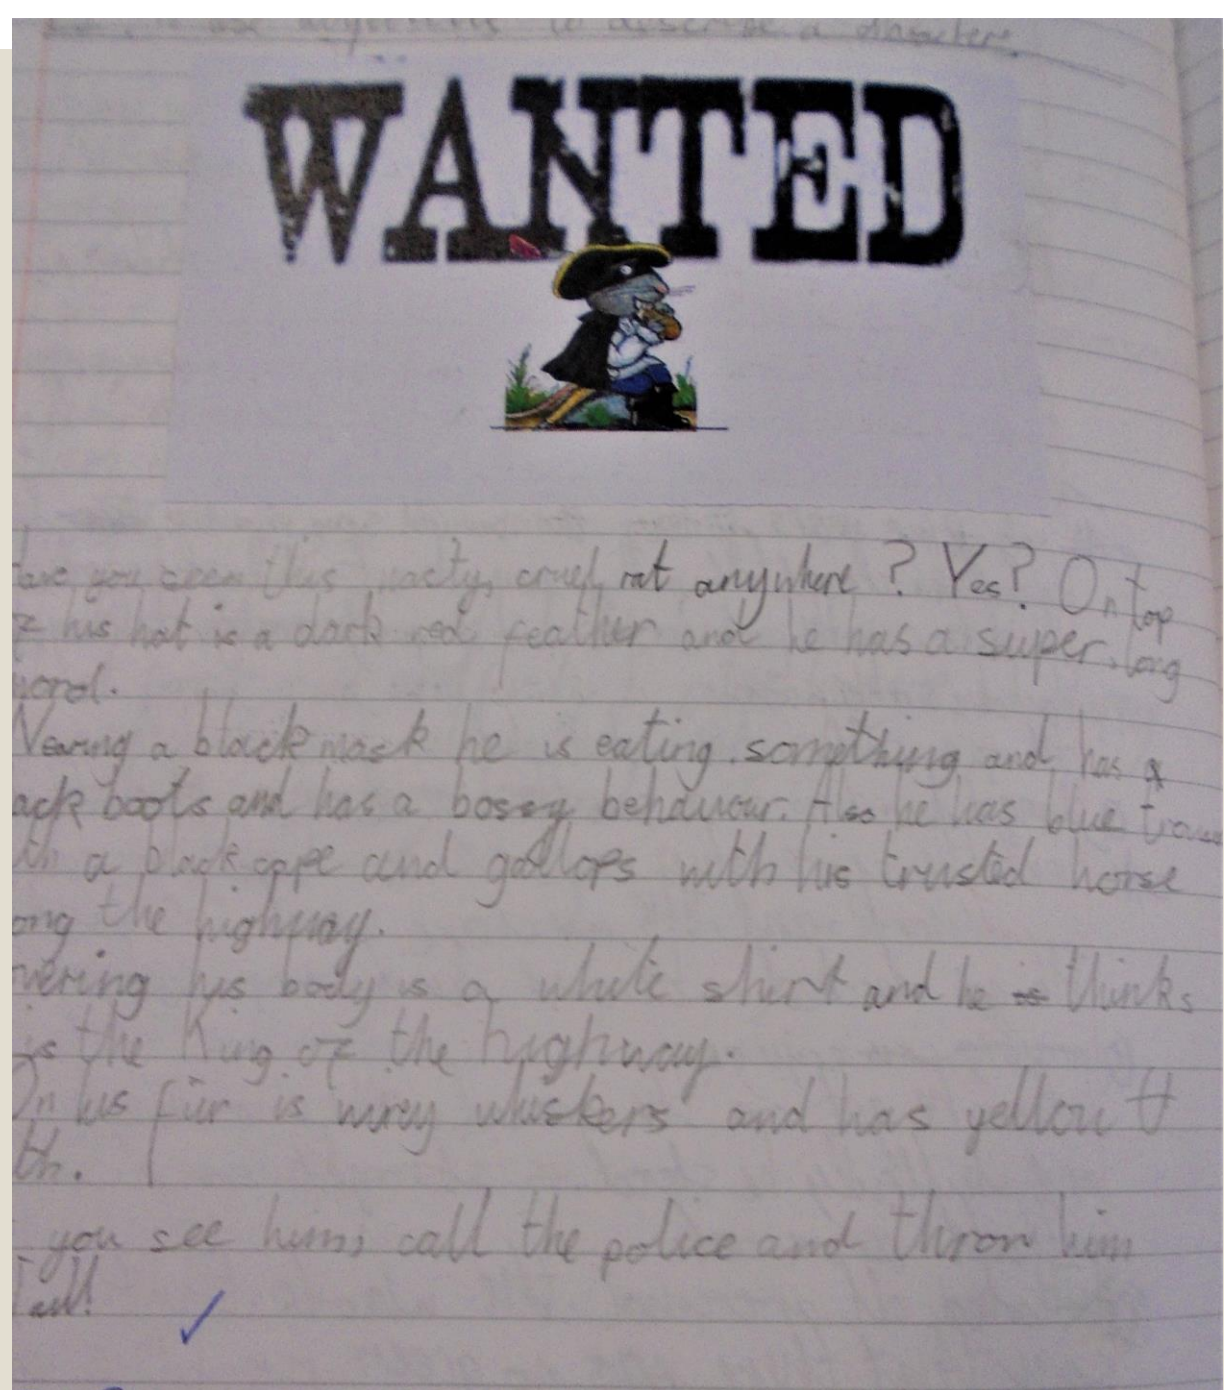 to describe a character.
WANTED
you seen this nasty, cruel rat anywhere? Yes? On top
his hat is a dark red feather and he has a super, long
word.
Wearing a black mask he is eating something and has a
ack boots and has a bossy behaviour. Also he has blue trou
th a black cape and gallops with his trusted horse
ong the highway.
vering his body is a white shirt and he is thinks
is the King of the highway.
On his fur is wirey whiskers and has yellow t
th.
you see him, call the police and throw him